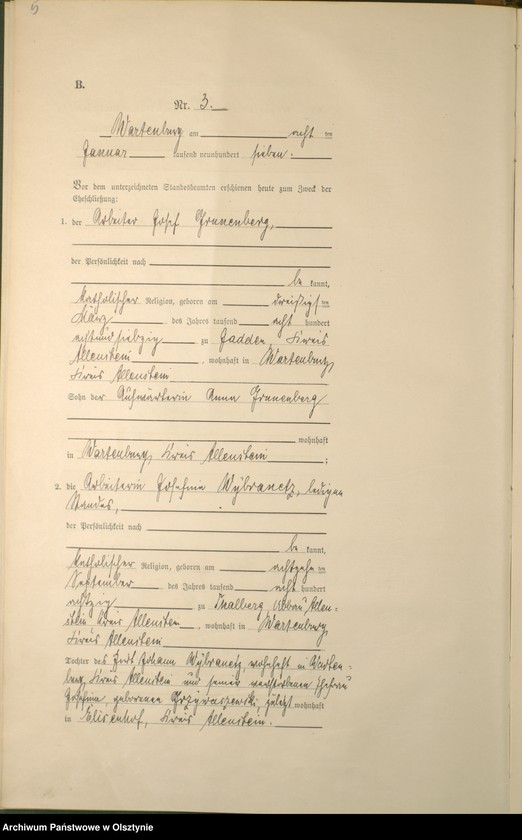 5
B.
Nr. 3.
Wartenberg am acht ten
Januar tausend neunhundert sieben.
Vor dem unterzeichneten Standesbeamten erschienen heute zum Zweck der
Eheschließung:
1. der Arbeiter Josef Grunenberg,
der Persönlichkeit nach
be kannt,
katholischer Religion, geboren am dreißigsten
März des Jahres tausend acht hundert
achtundsiebzig zu Jadden, Kreis
Allenstein, wohnhaft in Wartenburg,
Kreis Allenstein
Sohn der Aufwärterin Anna Grunenberg
wohnhaft
in Wartenburg, Kreis Allenstein;
2. die Arbeiterin Josefine Wybranetz, ledigen
Standes,
der Persönlichkeit nach
be kannt,
katholischer Religion, geboren am achtzehn ten
September des Jahres tausend acht hundert
achtzig zu Thalberg, Abbau Allen-
stein Kreis Allenstein, wohnhaft in Wartenburg,
Kreis Allenstein
Tochter des Johann Wybranetz, wohnhaft in Warten-
burg, Kreis Allenstein und seiner verstorbenen Ehefrau
Josefina, geborenen zuletzt wohnhaft
in Elisenhof, Kreis Allenstein.
Archiwum Państwowe w Olsztynie